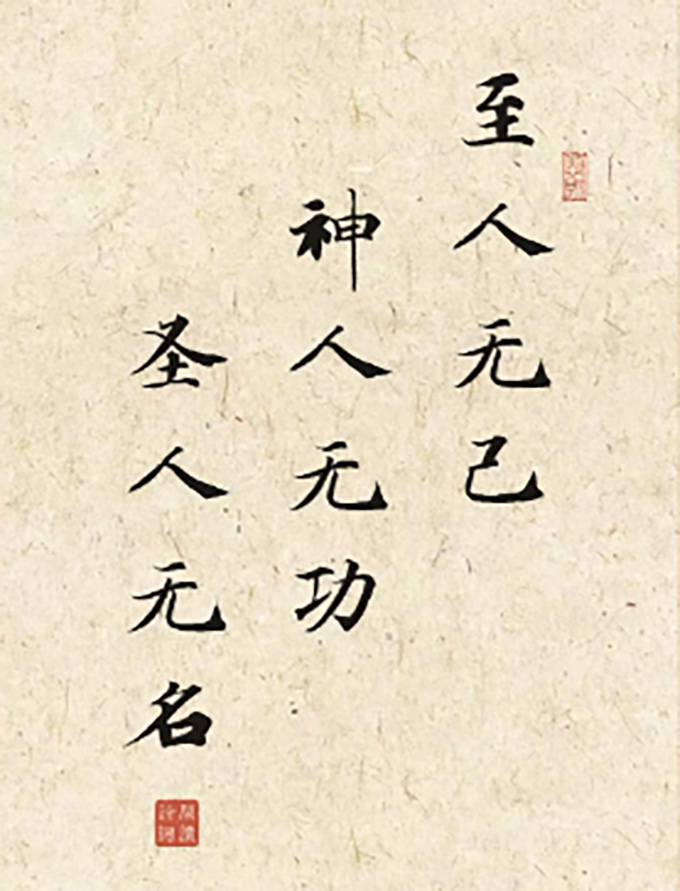 至人无己
神人无功
圣人无名